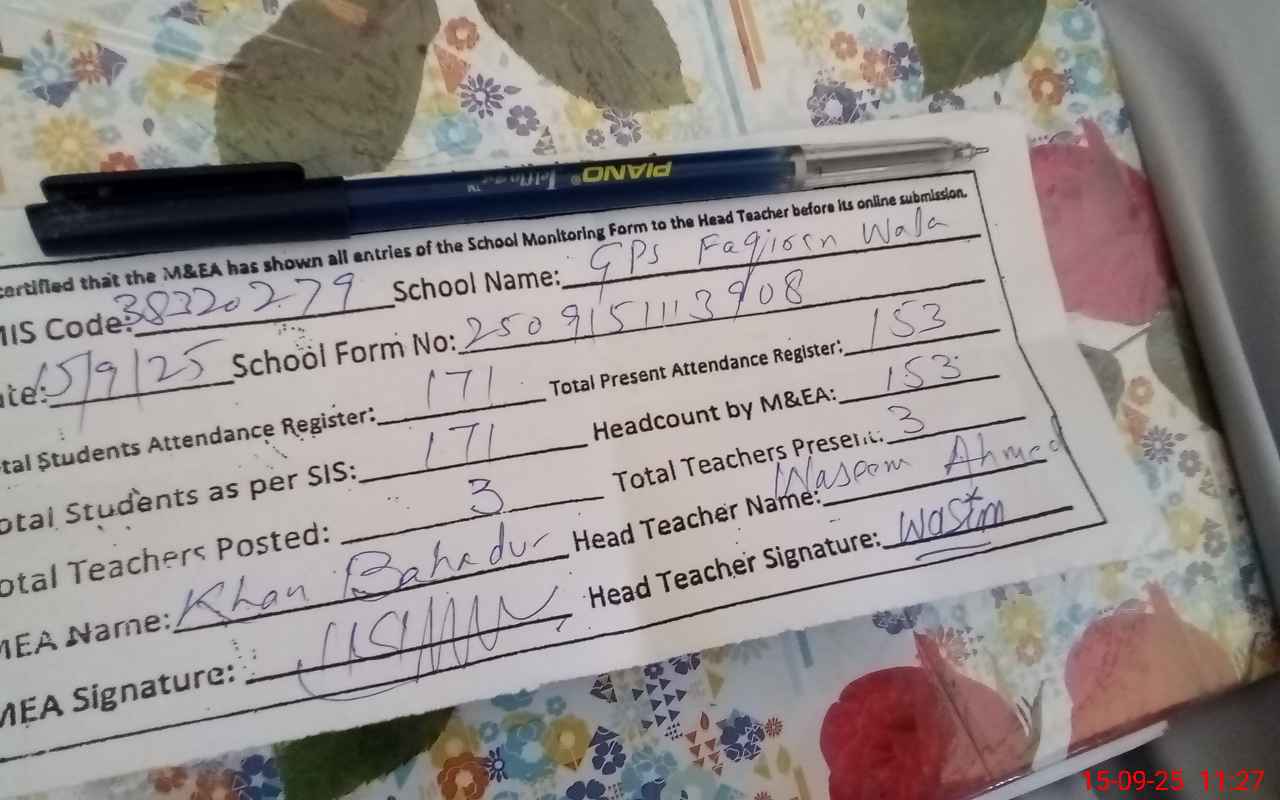 PIANO®
certified that the M&EA has shown all entries of the School Monitoring Form to the Head Teacher before its online submission.
MIS Code: 38320279 School Name: GPS Faqiran Wala
ate: 15/9/25 School Form No: 2509151113908
tal Students Attendance Register: 171 Total Present Attendance Register: 153
otal Students as per SIS: 171 Headcount by M&EA: 153
otal Teachers Posted: 3 Total Teachers Present: 3
MEA Name: Khan Bahadur Head Teacher Name: Waseem Ahmed
MEA Signature: Head Teacher Signature: Wasim
15-09-25 11:27